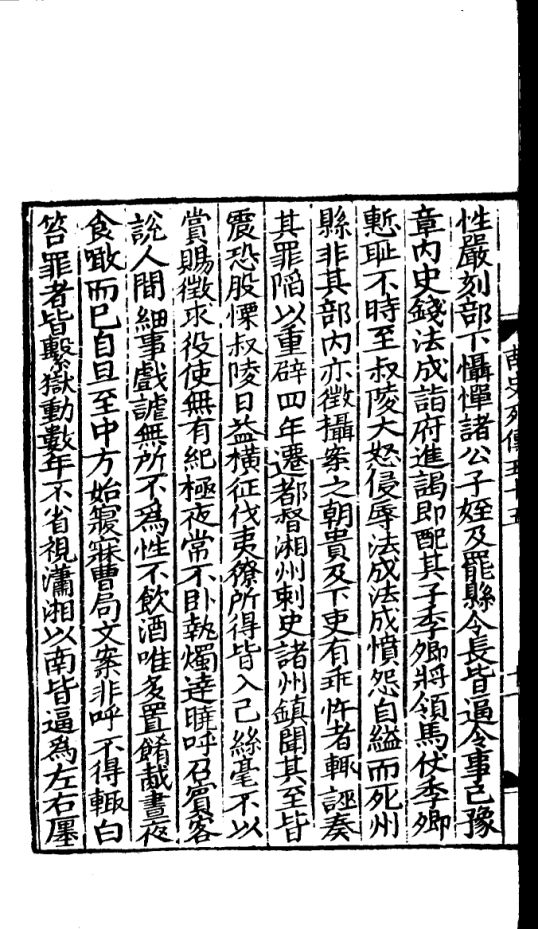 南史列傳五十五
性嚴刻部下懾憚諸公子姪及罷縣令長皆逼令事己豫
章内史錢法成詣府進謁即配其子季卿將領馬伏季卿
慙耻不時至叔陵大怒侵辱法成法成憤怨自縊而死州
縣非其部内亦徵攝案之朝貴及下吏有乖忤者輒誣奏
其罪陷以重辟四年遷都督湘州刺史諸州鎮聞其至皆
震恐股慄叔陵日益橫征伐夷獠所得皆入己絲毫不以
賞賜徵求役使無有紀極夜常不卧執燭達曉呼召賓客
說人間細事戲謔無所不爲性不飲酒唯多置餚胾晝夜
食噉而已自旦至中方始寢寐曹局文案非呼不得輙白
笞罪者皆繫獄動數年不省視瀟湘以南皆逼為左右廛